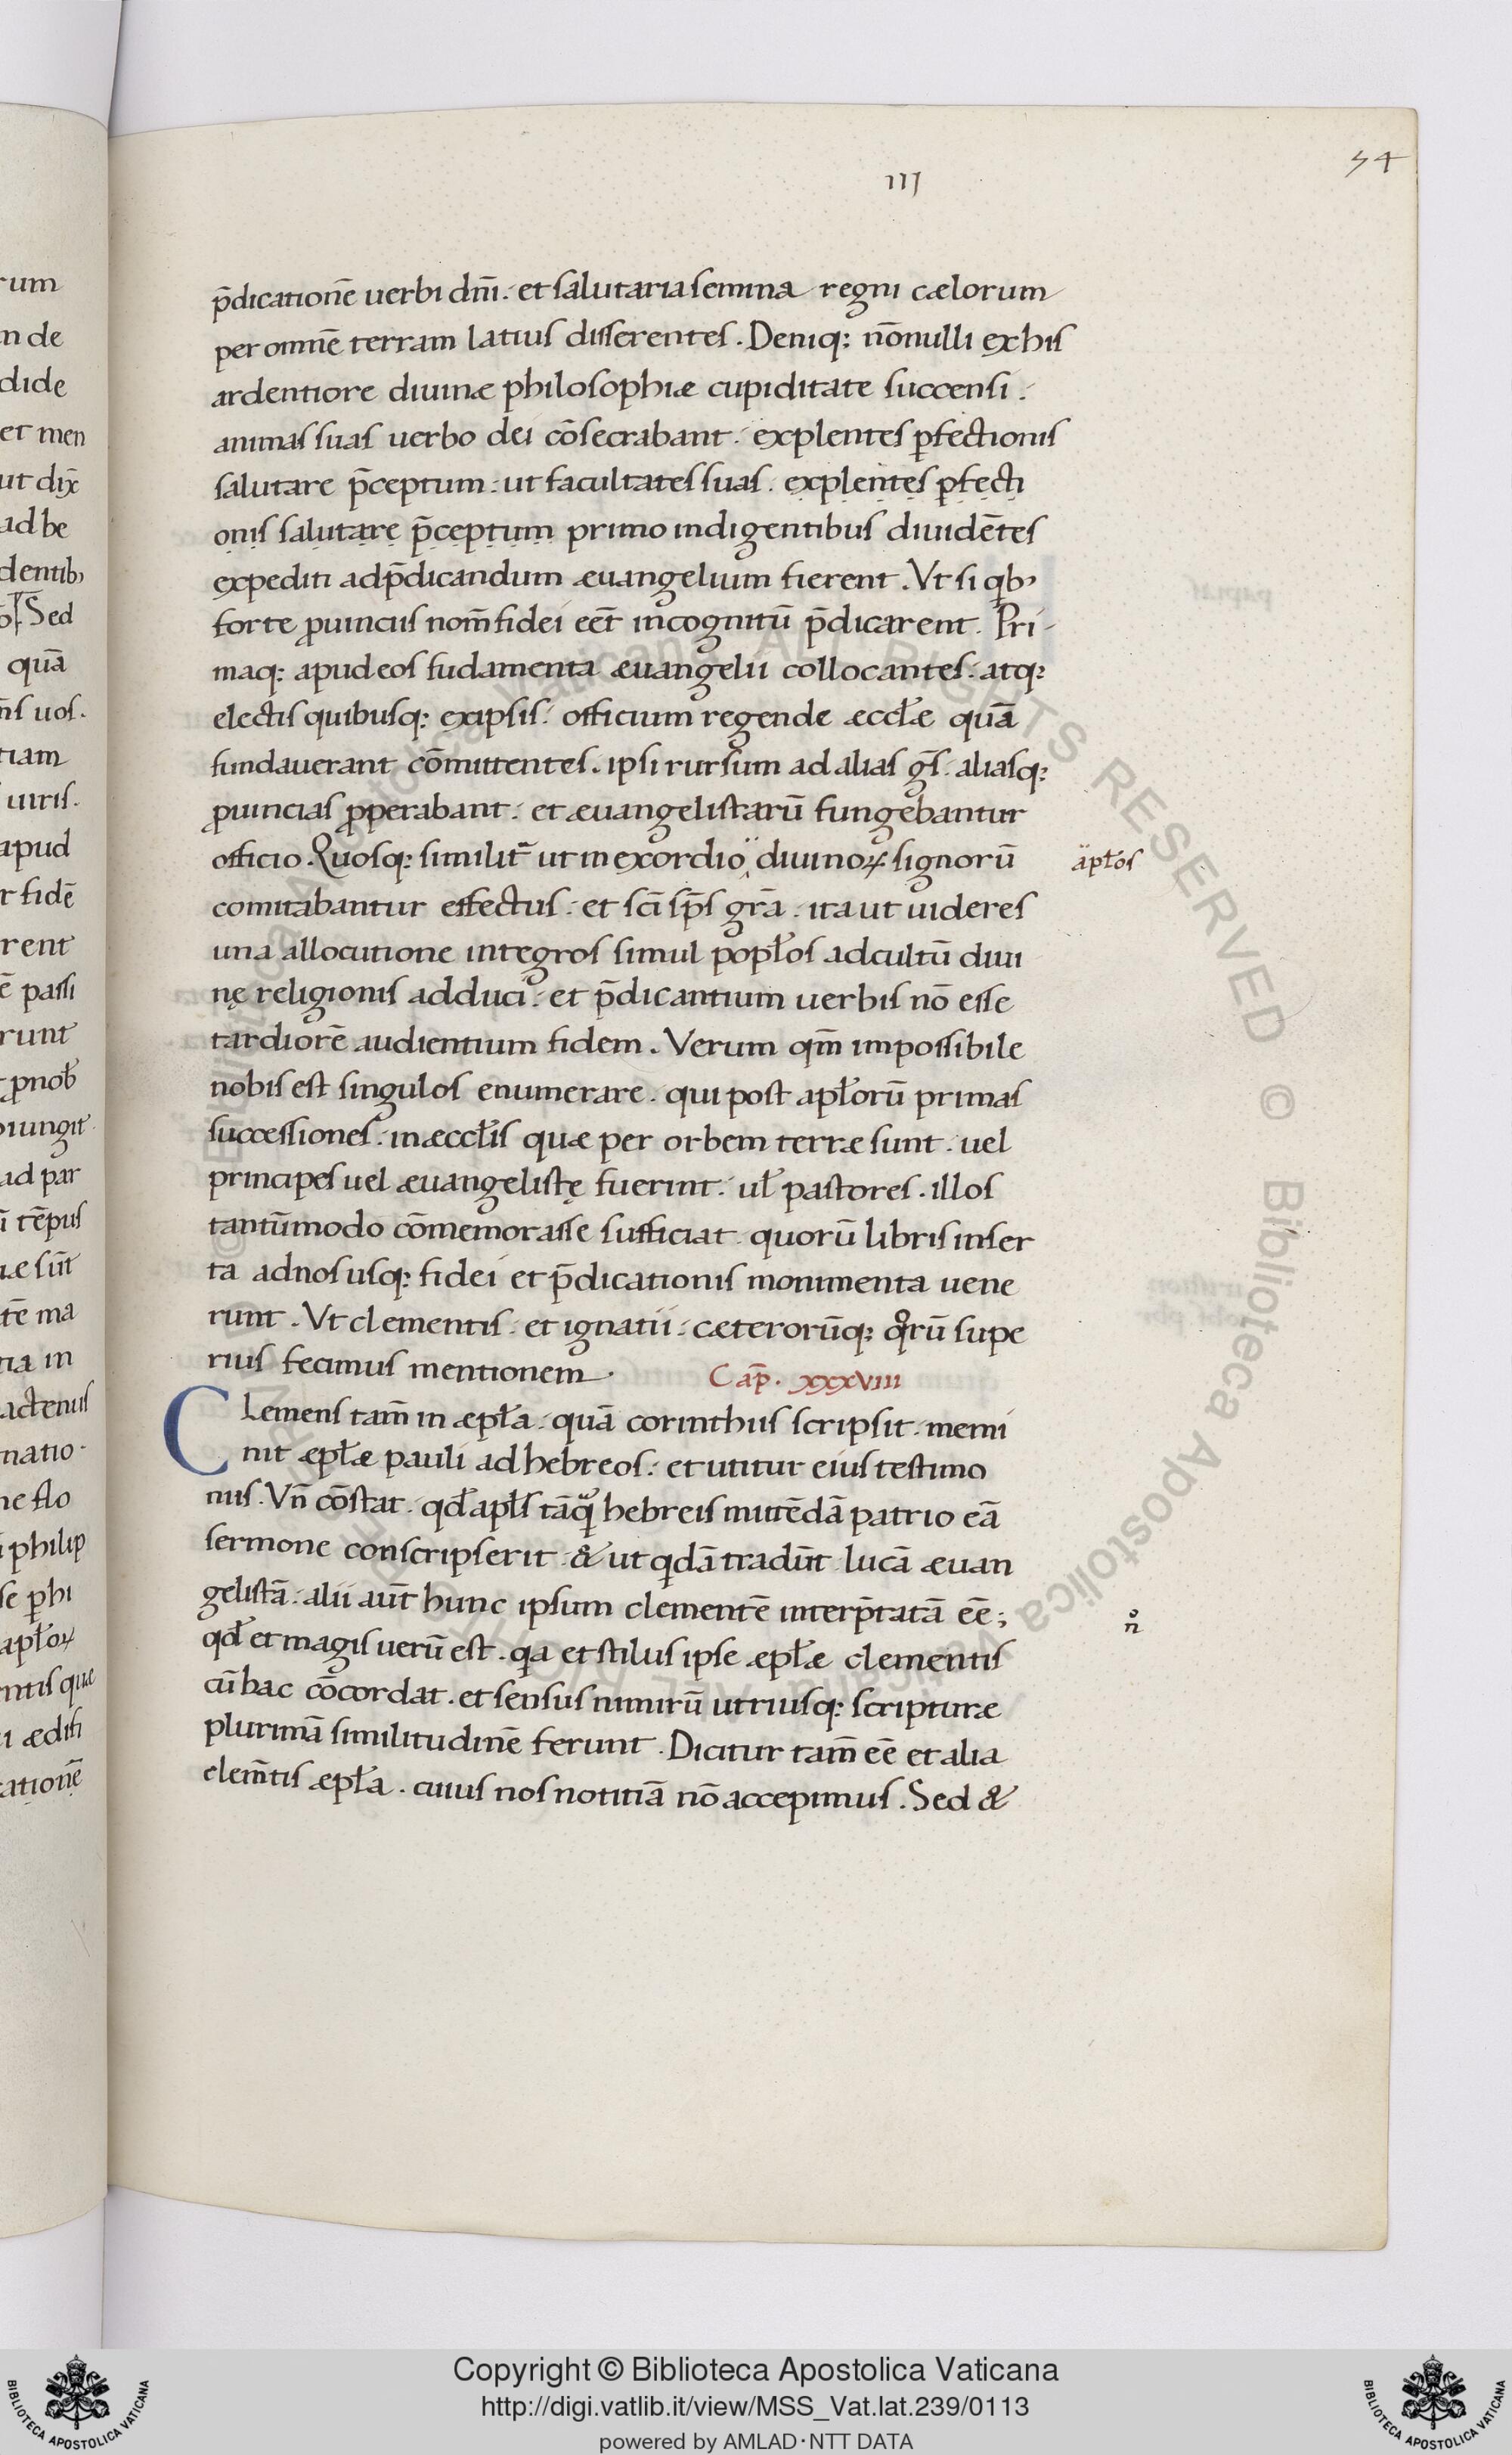 54
III
p̄dicationē uerbi dn̄i. et salutaria semina regni cælorum
per omnē terram latius disserentes. Deniq; nōnulli ex his
ardentiore diuinæ philosophiæ cupiditate succensi.
animas suas uerbo dei cōsecrabant. explentes ꝑfectionis
salutare p̄ceptum. ut facultates suas. explentes ꝑfecti
onis salutare p̄ceptum primo indigentibus diuidētes
expediti ad p̄dicandum æuangelium fierent. Vt si qb;
forte ꝓuinciis nom̄ fidei eet̄ incognitū p̄dicarent. Pri-
maq; apud eos fudamenta æuangelii collocantes. atq;
electis quibusq; ex ipsis. officium regende æccł̄e quā
fundauerant cōmittentes. ipsi rursum ad alias gs̄. aliasq;
ꝓuincias ꝓperabant. et æuangelistarū fungebantur
officio. Quosq; similit̄ ut in exordio diuinoꝝ signorū
äpłos
comitabantur effectus. et sc̄i sp̄s gr̄a. ita ut uideres
una allocutione integros simul popłos ad cultū diui
nę religionis adduci. et p̄dicantium uerbis nō esse
tardiorē audientium fidem. Verum qm̄ impossibile
nobis est singulos enumerare. qui post apłorū primas
successiones. in æccłis quæ per orbem terræ sunt. uel
principes uel æuangelistę fuerint. uł pastores. illos
tantūmodo cōmemorasse sufficiat quorū libris inser
ta ad nos usq; fidei et p̄dicationis monimenta uene
runt. Vt clementis. et ignatii. cæterorūq; qͦrū supe
rius fecimus mentionem.
Cap̄. XXXVIII
Clemens tam̄ in æpła. quā corinthiis scripsit. memi
nit æpłæ pauli ad hebreos. et utitur eius testimo
niis. Vn̄ cōstat. qđ apłs tāqͣ hebreis mittēdā patrio eā
sermone conscripserit. & ut qdā tradūt lucā æuan
gelistā. alii aut̄ hunc ipsum clementē interp̄tatā eē;
n̊
qđ et magis uerū est. qa et stilus ipse æpłæ clementis
cū hac cōcordat. et sensus nimirū utriusq; scripturæ
plurimā similitudinē ferunt. Dicitur tam̄ eē et alia
clem̄tis æpła. cuius nos notitiā nō accepimus. Sed &
Copyright © Biblioteca Apostolica Vaticana
http://digi.vatlib.it/view/MSS_Vat.lat.239/0113
powered by AMLAD·NTT DATA